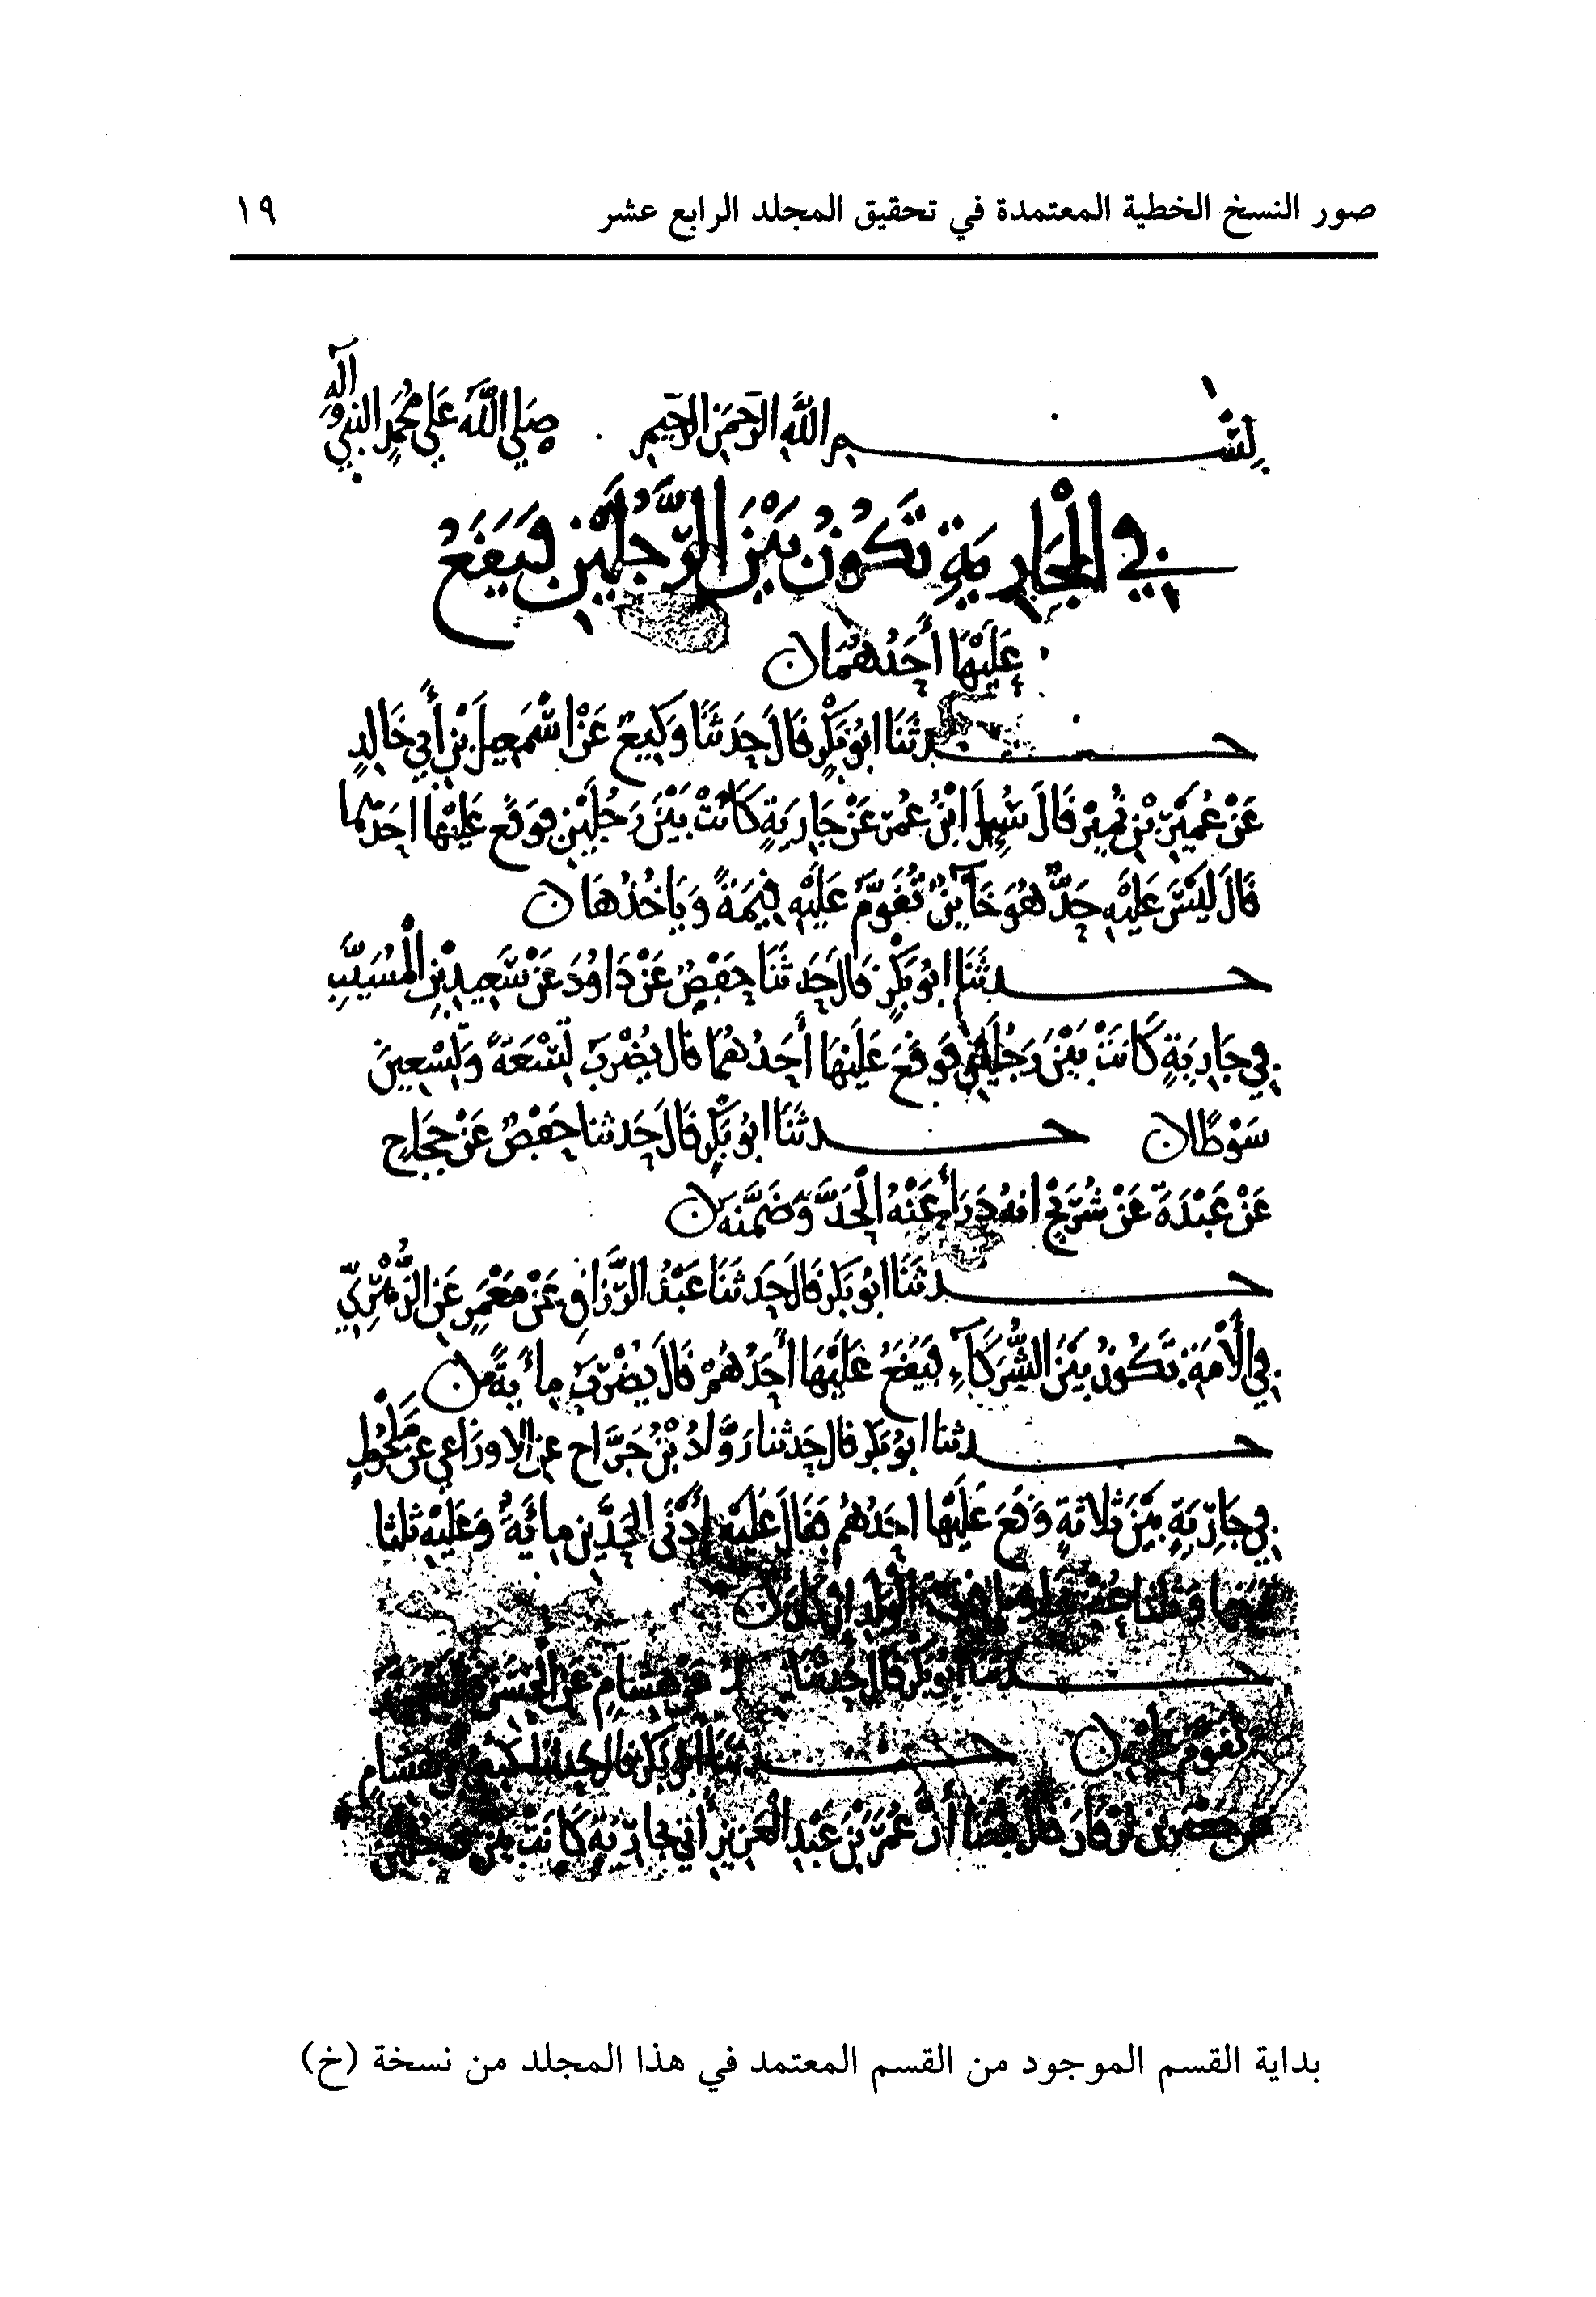 صور النسخ الخطية المعتمدة في تحقيق المجلد الرابع عشر ١٩
بسم الله الرحمن الرحيم صلى الله على محمد النبي وآله
في الْجَارِيَةِ تَكُونُ بَيْنَ الرَّجُلَيْنِ فَيَقَعُ
عَلَيْهَا أَحَدُهُمَا ن
حدثَنَا ابُو بَكْرٍ قَالَ حَدثَنَا وَكِيعٌ عَنْ اسْمَعِيلَ بْنِ أَبِي خَالِدٍ
عَنْ عُمَيْرِ بْنِ نُمَيْرٍ قَالَ سُيِلَ ابْنُ عُمَرَ عَنْ جَارِيَةٍ كَانَتْ بَيْنَ رَجُلَيْنِ فوَقَع عَلَيْهَا احَدهُمَا
قَالَ لَيْسَ عَلَيْهِ حَدٌّ هُوَ خَآيِنٌ تُقَوَّمُ عَلَيْهِ قِيمَةً وَيَاخُذُهَا ن
حدثَنَا ابُو بَكْرٍ قَالَ حَدثَنَا حَفْصٌ عَنْ دَاوُدَ عَنْ سَعِيدِ بْنِ الْمُسَيَّبِ
فِي جَارِيَةٍ كَانَتْ بَيْنَ رَجُلَيْنِ فَوَقَعَ عَلَيْهَا أَحَدُهُمَا قَال يُضْرَبُ تِسْعَةً وَتِسْعِينَ
سَوْطًا ن حدثَنَا ابُو بَكْرٍ قَالَ حَدثنا حَفْصٌ عَنْ حَجَّاجٍ
عَنْ عَبْدَةَ عَنْ شُرَيْحٍ انهُ دَرَأَ عَنْهُ الْحَدَّ وَضَمَّنَهُ ن
حدثَنَا ابُو بَكْرٍ قَالَ حَدثَنَا عَبْدُ الرَّزَّاقِ عَنْ مَعْمَرٍ عَنِ الزُّهْرِيِّ
فِي الْأَمَةِ تَكُونُ بَيْنَ الشُّرَكَآءِ فَيَقَعُ عَلَيْهَا أَحَدُهُمْ قَالَ يُضْرَبُ مِائَةً ن
حدثنا ابُو بَكْرٍ قَال حَدثنا رَوَّادُ بْنُ جَرَّاحٍ عن الاوزَاعي عن مَكْحُولٍ
فِي جَارِيَةٍ بَيْنَ ثَلَاثَةٍ وَقَعَ عَلَيْهَا احَدُهُمْ فَقَالَ عَلَيْهِ أَدْنَى الحَدَّيْنِ مِائَةٌ وَعَلَيْهِ ثلثا
ثمنها وثلثا عقرها الولد ان كان ن
حدثنا ابُو بَكْرٍ قَالَ حَدثنا عَنْ هِشَامٍ عَنِ الْحَسَنِ
تقوم عليه ن حدثنا ابُو بَكْرٍ قَال حدثنا كثير عن هشام
عن جعفر بن برقان قَالَ بلغنا أَنَّ عُمَرَ بْنَ عَبْدِ الْعَزِيزِ أُتِيَ بجارِيَةٍ كَانَتْ بَيْنَ رجلين
بداية القسم الموجود من القسم المعتمد في هذا المجلد من نسخة (خ)